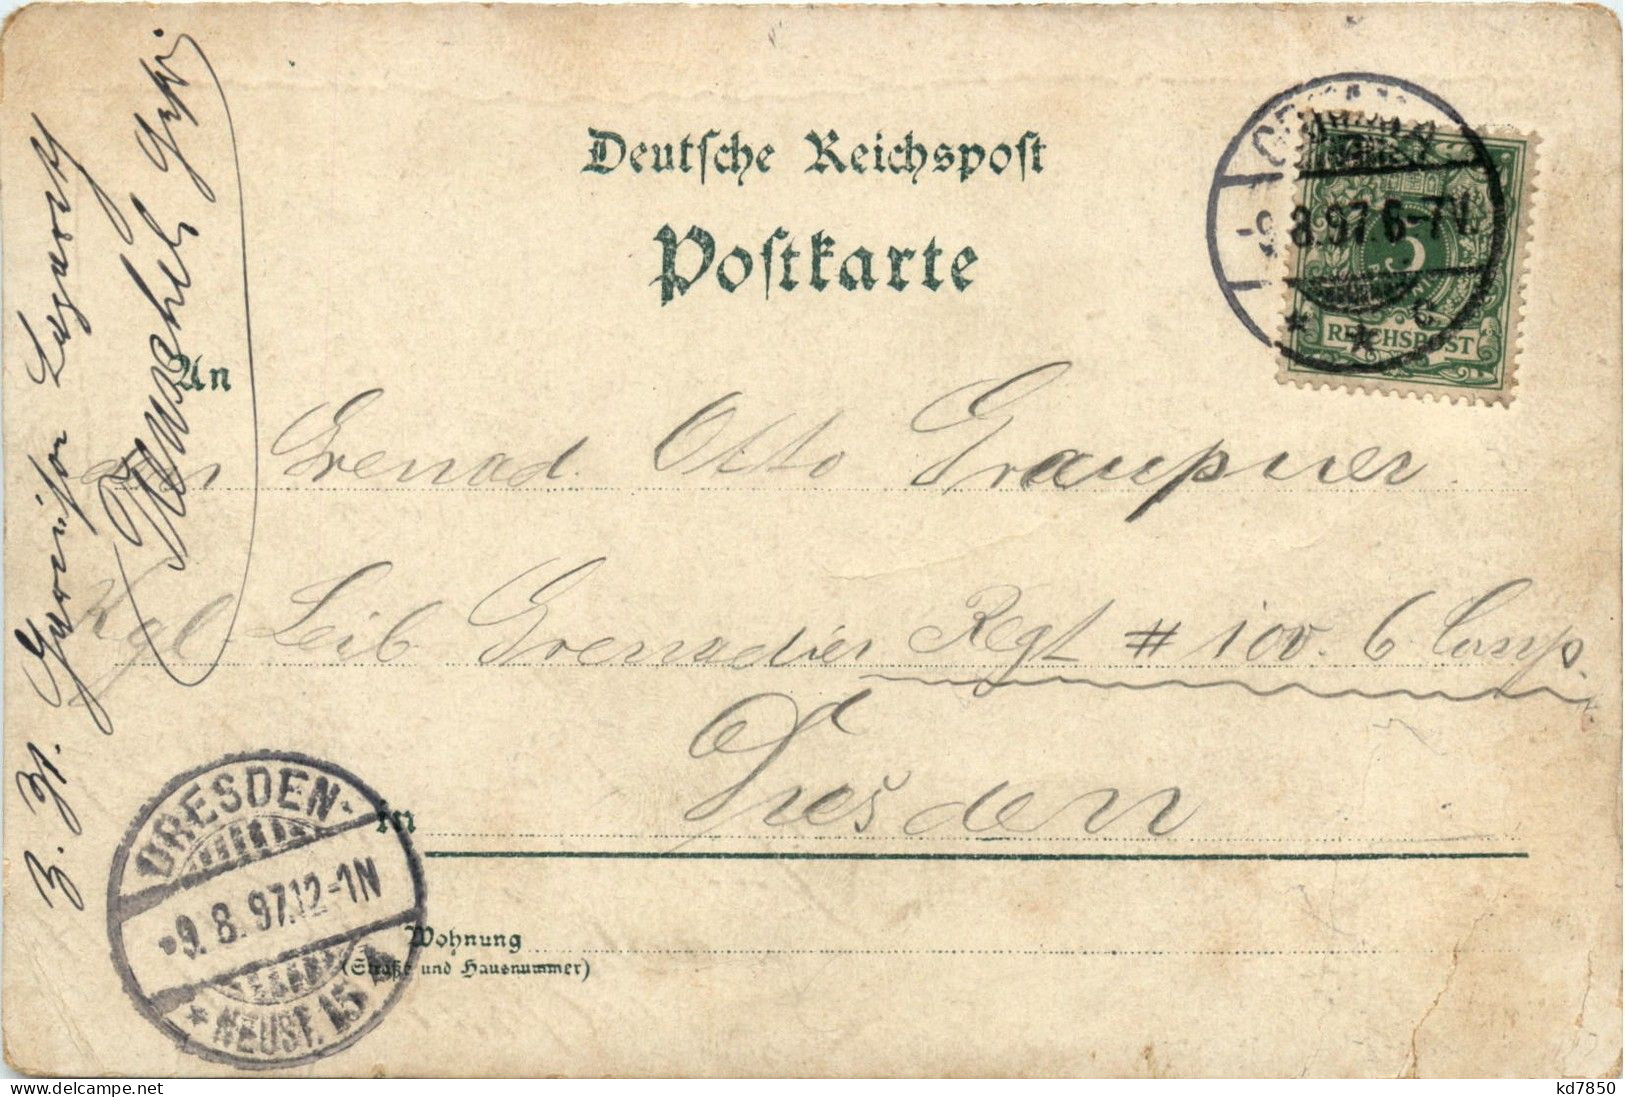 Deutsche Reichspost
Postkarte
8.97.6-7V.
5
REICHSPOST
An
den Grenad. Otto Graupner
Kgl. Leib Grenadier Regt # 100. 6 Comp.
in Dresden
Wohnung
(Straße und Hausnummer)
DRESDEN-
9.8.97.12-1N
NEUST. 15
z. Zt. Garnison Lazareth
kd7850